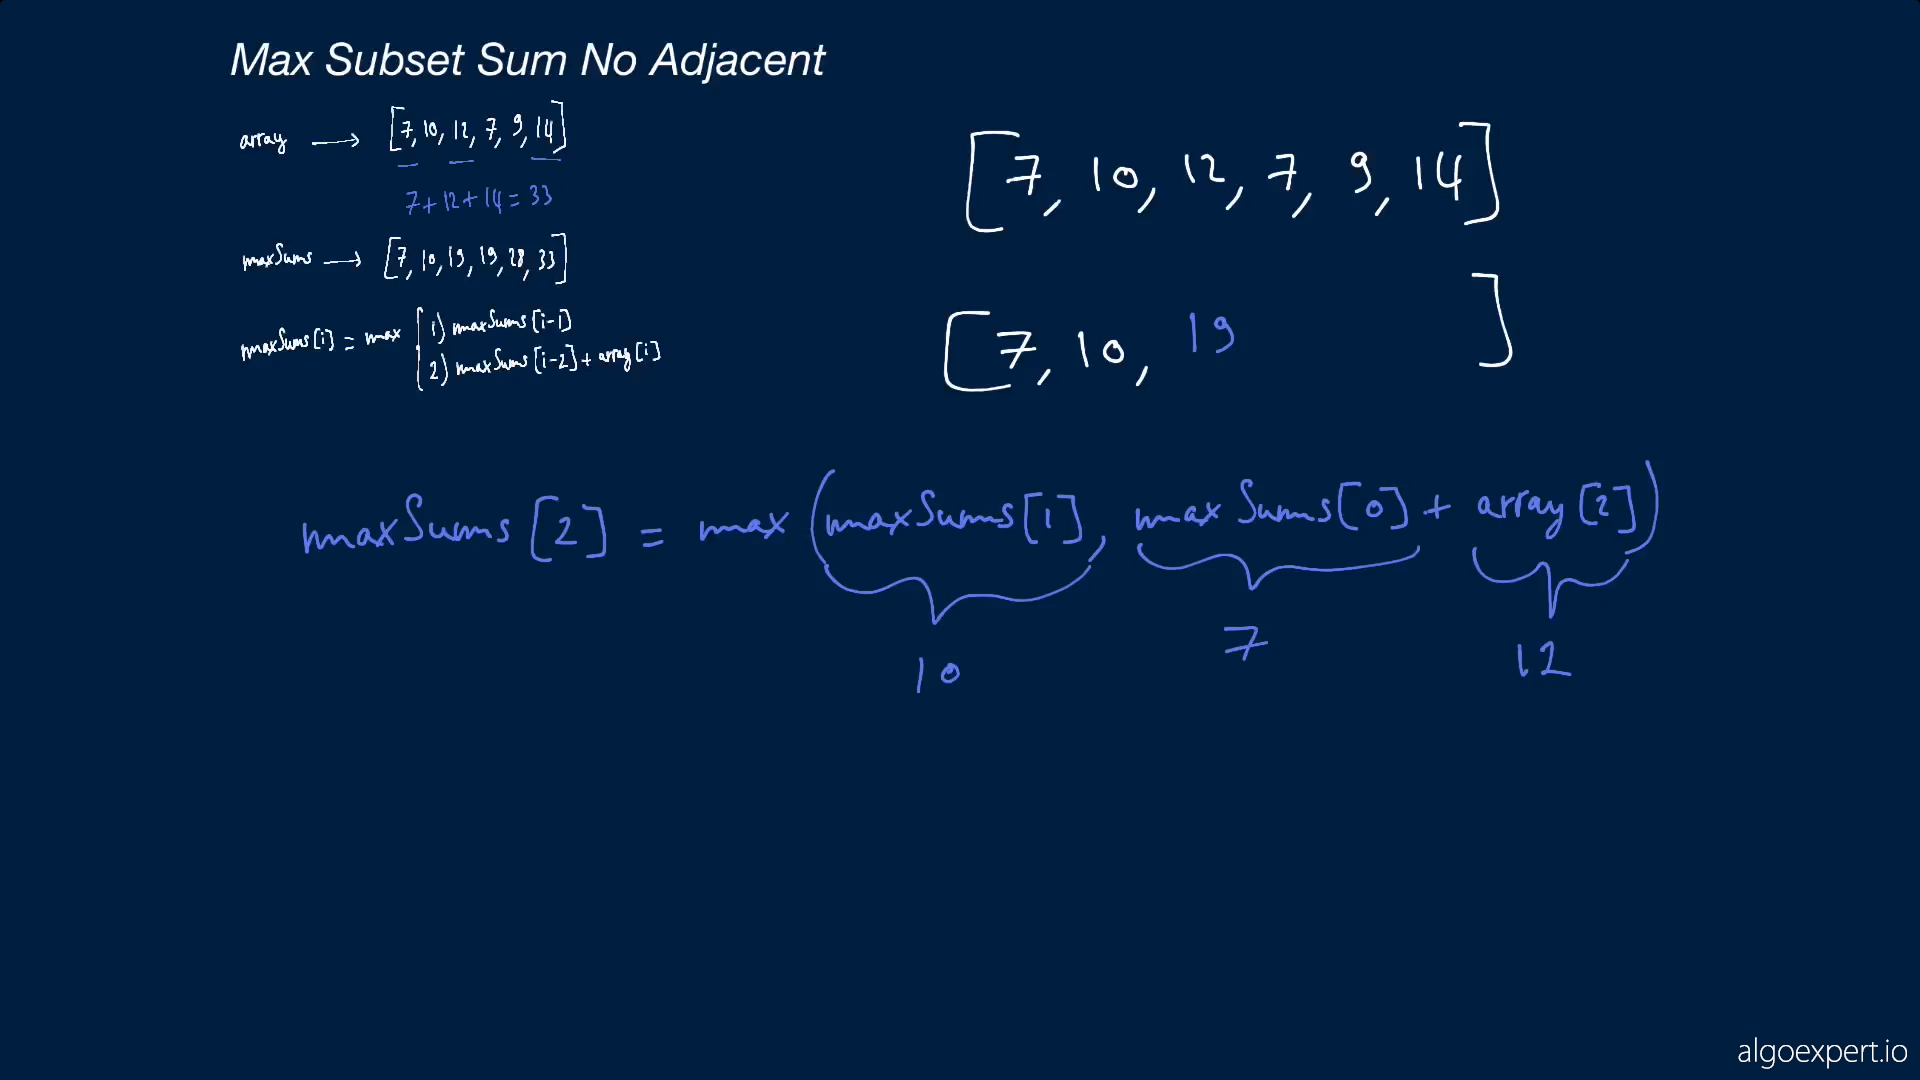 Max Subset Sum No Adjacent
array → [7, 10, 12, 7, 9, 14]
7+12+14=33
maxSums → [7, 10, 19, 19, 28, 33]
maxSums[i] = max { 1) maxSums[i-1]
2) maxSums[i-2] + array[i]
[7, 10, 12, 7, 9, 14]
[7, 10, 19 ]
maxSums[2] = max(maxSums[1], maxSums[0] + array[2])
10 7 12
algoexpert.io